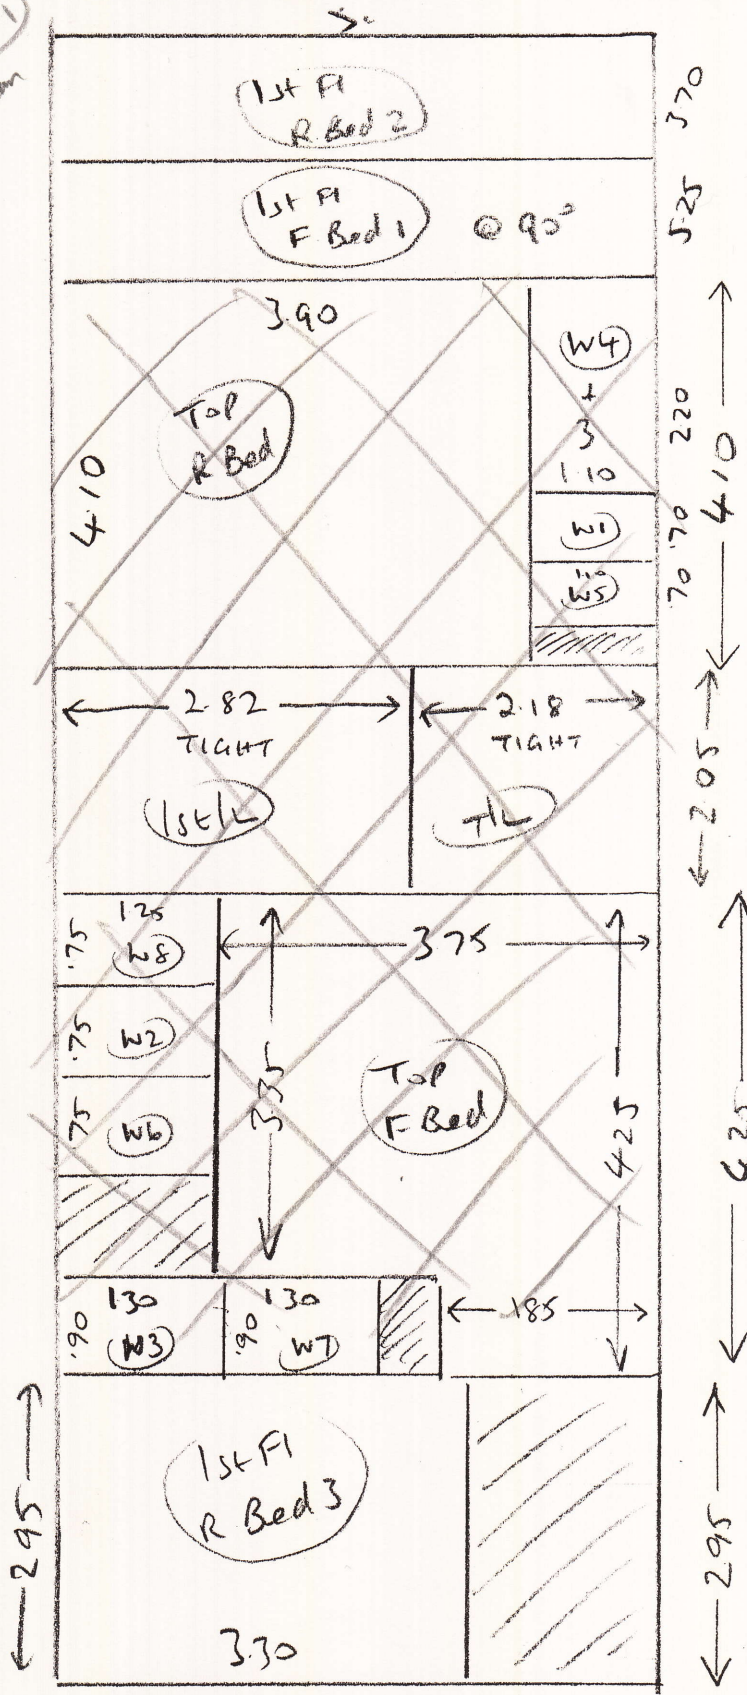 1st Fl
R Bed 2
370
1st Fl
F Bed 1
@ 90°
525
3.90
Top
R Bed
4.10
W4
+
3
1.10
220
410
W1
.70
1.10
W5
.70
2.82
TIGHT
1st/L
2.18
TIGHT
T/L
2.05
1.25
.75
W8
375
.75
W2
3.35
Top
F Bed
425
425
.75
W6
130
.90
W3
130
.90
W7
185
1st Fl
R Bed 3
295
295
3.30